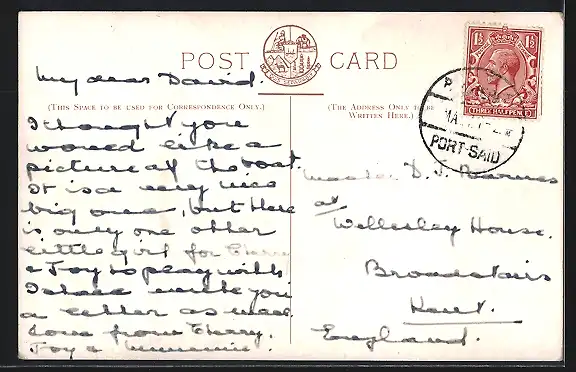 POST CARD
My dear David.
(THIS SPACE TO BE USED FOR CORRESPONDENCE ONLY.)
I thought you
would like a
picture of the boat.
It is a very nice
big one, but there
is only one other
little girl for Cherry
& Joy to play with
I shall write you
a letter as well
Love from Cherry.
Joy &
(THE ADDRESS ONLY TO BE
WRITTEN HERE.)
Master D. J. Barnes
at Wellesley House.
Broadstairs
Kent.
England.
1½ 1½
THREE HALFPENCE
PORT-SAID